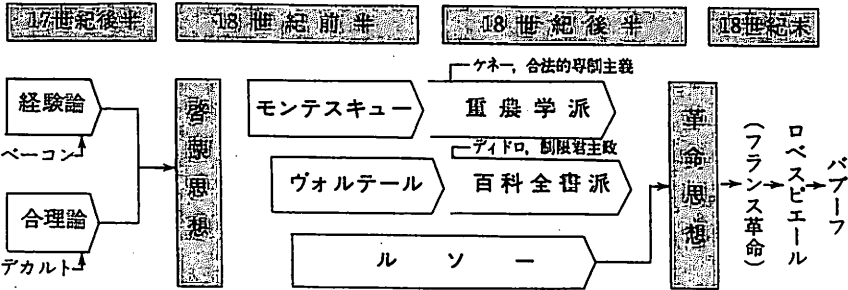 17世紀後半
18世紀前半
18世紀後半
18世紀末
経験論
ベーコン
合理論
デカルト
啓蒙思想
モンテスキュー
ケネー，合法的専制主義
重農学派
ヴォルテール
ディドロ，制限君主政
百科全書派
ルソー
革命思想
(フランス革命)
ロベスピエール
バブーフ